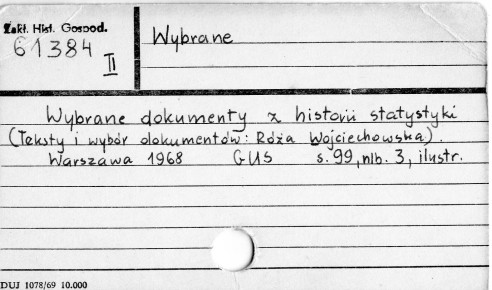 Zakł. Hist. Gospod.
61384
II
Wybrane
Wybrane dokumenty z historii statystyki
(Teksty i wybór dokumentów: Róża Wojciechowska).
Warszawa 1968 GUS s. 99, nlb. 3, ilustr.
DUJ 1078/69 10.000